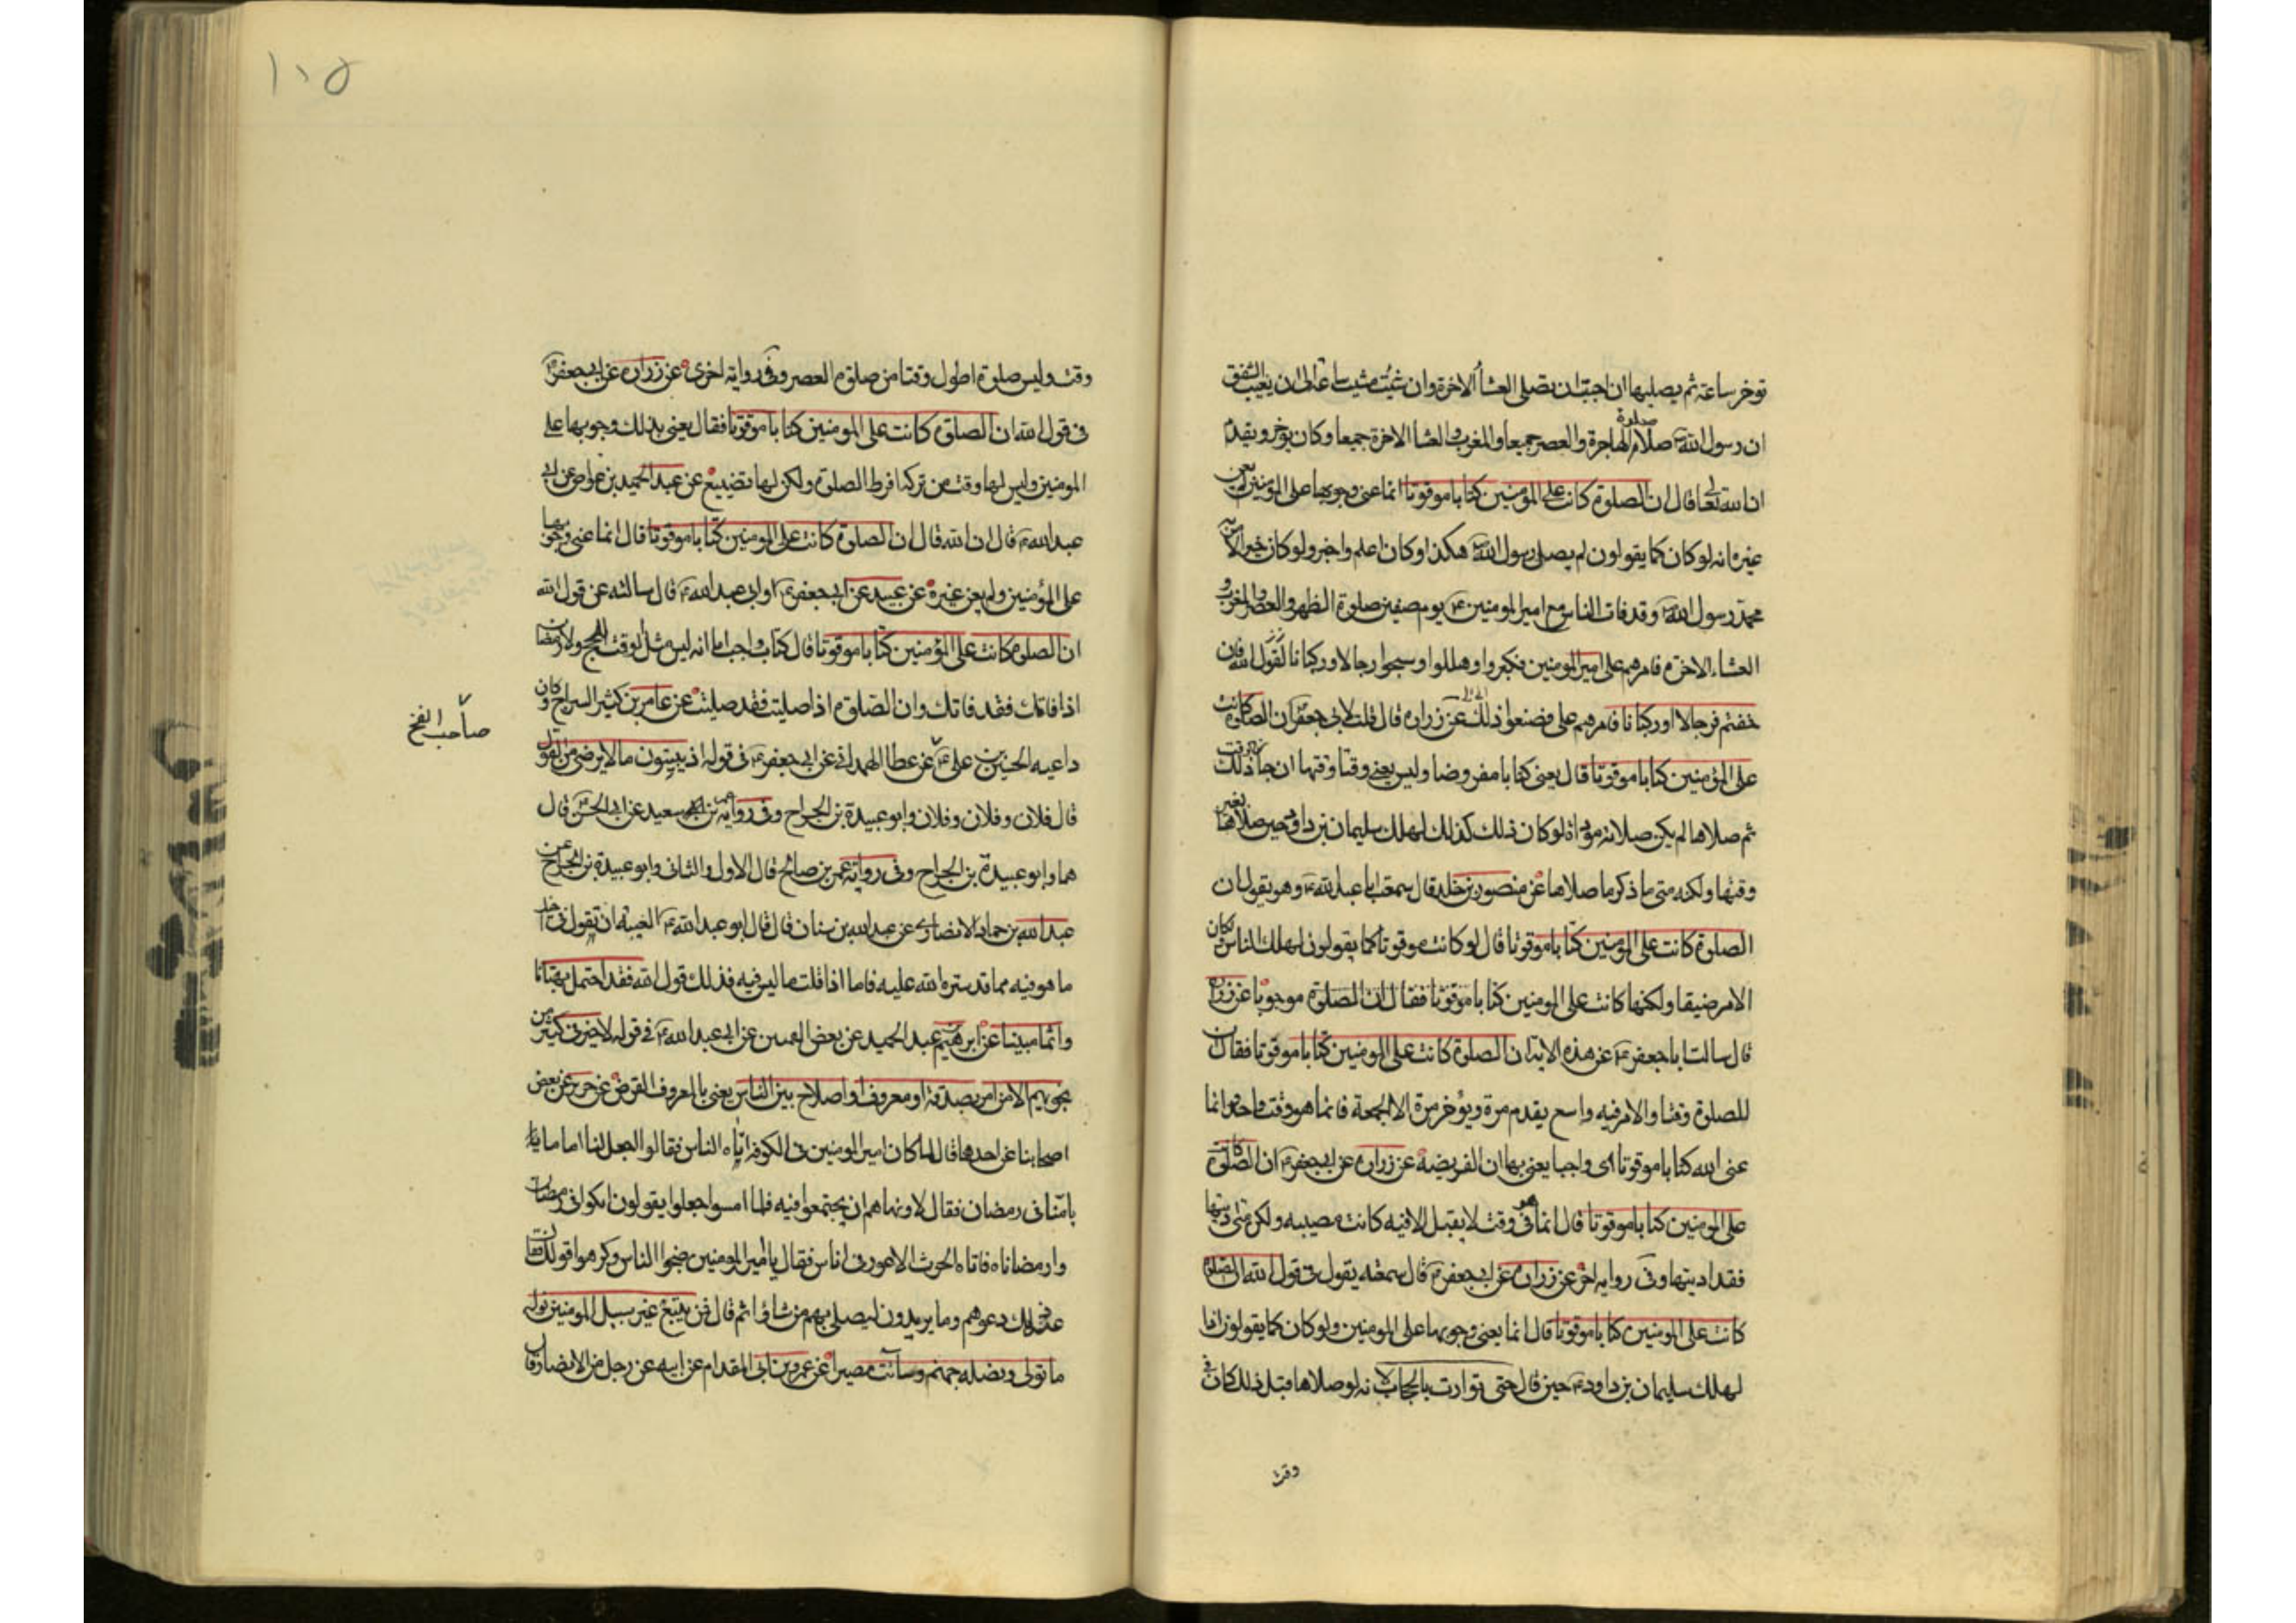 توخر ساعة ثم يصليها ان احب ان يصلى العشأ الاخرة وان شئت مشيت ساعة الى ان يغيب الشفق
ان رسول الله صلوة الهاجرة والعصر جميعا والمغرب والعشا الاخرة جميعا وكان يؤخر ويقدم
ان الله تعالى قال ان الصلوة كانت على المومنين كتابا موقوتا انما عنى وجوبها على المؤمنين لم يعن
غيره انه لو كان كما يقولون لم يصل رسول الله هكذا وكان اعلم واخبر ولو كان خيرا لامر به
محمد رسول الله وقد فات الناس مع امير المومنين يوم صفين صلوة الظهر والعصر والمغرب و
العشاء الاخرة فامرهم على امير المومنين فكبروا وهللوا وسبحوا رجالا وركبانا لقول الله فان
خفتم فرجالا او ركبانا فامرهم على فصنعوا ذلك عن زرارة قال قلت لابى جعفر ان الصلوة كانت
على المؤمنين كتابا موقوتا قال يعنى كتابا مفروضا وليس يعنى وقتا وقتها ان جاز ذلك الوقت
ثم صلاها لم يكن صلاته موداة لو كان ذلك كذلك لهلك سليمان بن داود حين صلاها بغير
وقتها ولكنه متى ما ذكرها صلاها عن منصور بن خلد قال سمعت ابا عبد الله وهو يقول ان
الصلوة كانت على المومنين كتابا موقوتا قال لو كانت موقوتا كما يقولون لهلك الناس ولكان
الامر ضيقا ولكنها كانت على المومنين كتابا موقوتا فقال ان الصلوة موجوبا عن زرارة
قال سالت ابا جعفر عن هذه الاية ان الصلوة كانت على المومنين كتابا موقوتا فقال ان
للصلوة وقتا والامر فيه واسع يقدم مرة ويؤخر مرة الا الجمعة فانما هو وقت واحد وانما
عنى الله كتابا موقوتا اى واجبا يعنى بها ان الفريضة عن زرارة عن ابيجعفر ان الصلوة كانت
على المومنين كتابا موقوتا قال انما هو فى وقت لا يقبل الا فيه كانت مصيبه ولكن متى اديتها
فقد اديتها وفى رواية اخرى عن زرارة عن ابيجعفر قال سمعته يقول فى قول الله ان الصلوة
كانت على المومنين كتابا موقوتا قال انما يعنى وجوبها على المومنين ولو كان كما يقولون اذا
لهلك سليمان بن داود حين قال حتى توارت بالحجاب لانه لو صلاها قبل ذلك كان فى
وقت
١٠٥
وقت وليس صلوة اطول وقتا من صلوة العصر وفى رواية اخرى عن زرارة عن ابيجعفر
فى قول الله ان الصلوة كانت على المومنين كتابا موقوتا فقال يعنى بذلك وجوبها على
المومنين وليس لها وقت من تركه افرط الصلوة ولكن لها تضييع عن عبد الحميد بن عواض عن ابى
عبد الله قال ان الله قال ان الصلوة كانت على المومنين كتابا موقوتا قال انما عنى وجوبها
على المؤمنين ولم يعن غيره عن عبيد عن ابيجعفر او ابى عبد الله قال سالته عن قول الله
ان الصلوة كانت على المؤمنين كتابا موقوتا قال كتاب واجب اما انه ليس مثل الوقت الحج ولا رمضان
اذا فاتك فقد فاتك وان الصلوة اذا صليت فقد صليت عن عامر بن كثير السراج وكان
داعيه الحسين بن على عن عطا الهمدانى عن ابيجعفر فى قوله اذ يبيتون ما لا يرضى من القول
صاحب الفخ
قال فلان وفلان وفلان وابو عبيدة بن الجراح وفى رواية عن سعيد عن ابى الحسن قال
هما وابو عبيدة بن الجراح وفى رواية عمر بن صالح قال الاول والثانى وابو عبيدة بن الجراح عن
عبد الله بن حماد الانصارى عن عبد الله بن سنان قال قال ابو عبد الله الغيبة ان تقول فى اخيك
ما هو فيه مما قد ستره الله عليه فاما اذا قلت ما ليس فيه فذلك قول الله فقد احتمل بهتانا
واثما مبينا عن ابرهيم عبد الحميد عن بعض عن ابى عبد الله فى قوله لا خير فى كثير من
نجويهم الا من امر بصدقة او معروف او اصلاح بين الناس يعنى بالمعروف القرض عن حريز عن بعض
اصحابنا عن احدهما قال لما كان امير المومنين فى الكوفة اتاه الناس فقالوا اجعل لنا اماما
يامنا فى رمضان فقال لا ونهاهم ان يجتمعوا فيه فلما امسوا جعلوا يقولون ابكوا فى رمضان
وا رمضاناه فاتاه الحرث الاعور فى اناس فقال يا امير المومنين ضجوا الناس وكرهوا قولك فقال
عند ذلك دعوهم وما يريدون ليصلى بهم من شاؤا ثم قال فمن يتبع غير سبيل المومنين نوله
ما تولى ونصله جهنم وسائت مصيرا عن عمرو بن ابى المقدام عن ابيه عن رجل من الانصار قال